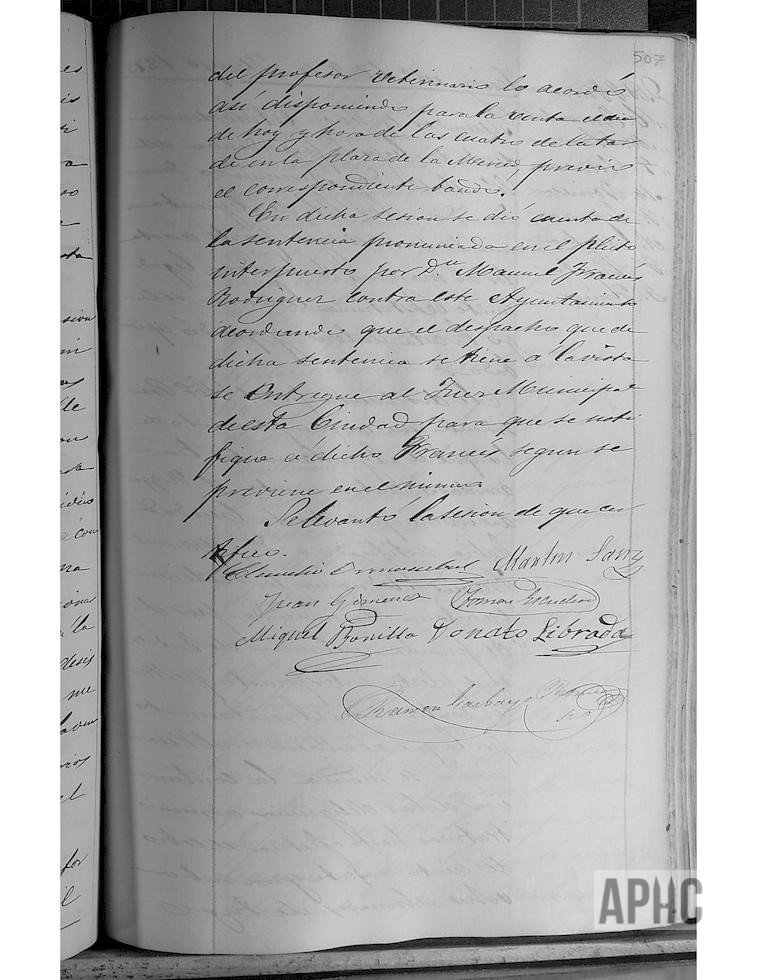 507
del profesor Veterinario lo acordó
así disponiendo para la venta el dia
de hoy y hora de las cuatro de la tar
de en la plaza de la Merced, previo
el correspondiente bando.
En dicha sesion se dió cuenta de
la sentencia pronunciada en el pleito
interpuesto por D.n Manuel Francés
Rodriguez contra este Ayuntamiento
acordando que el despacho que de
dicha sentencia se tiene a la vista
se entregue al Juez Municipal
de esta Ciudad para que se noti
fique á dicho Francés segun se
previene en el mismo.
Se levantó la sesion de que cer
tifico.
Claudio Martin Sanz
Juan Gimenez Tomas Escudero
Miguel Bonilla Donato Librada
Ramon Carbayo
APHC